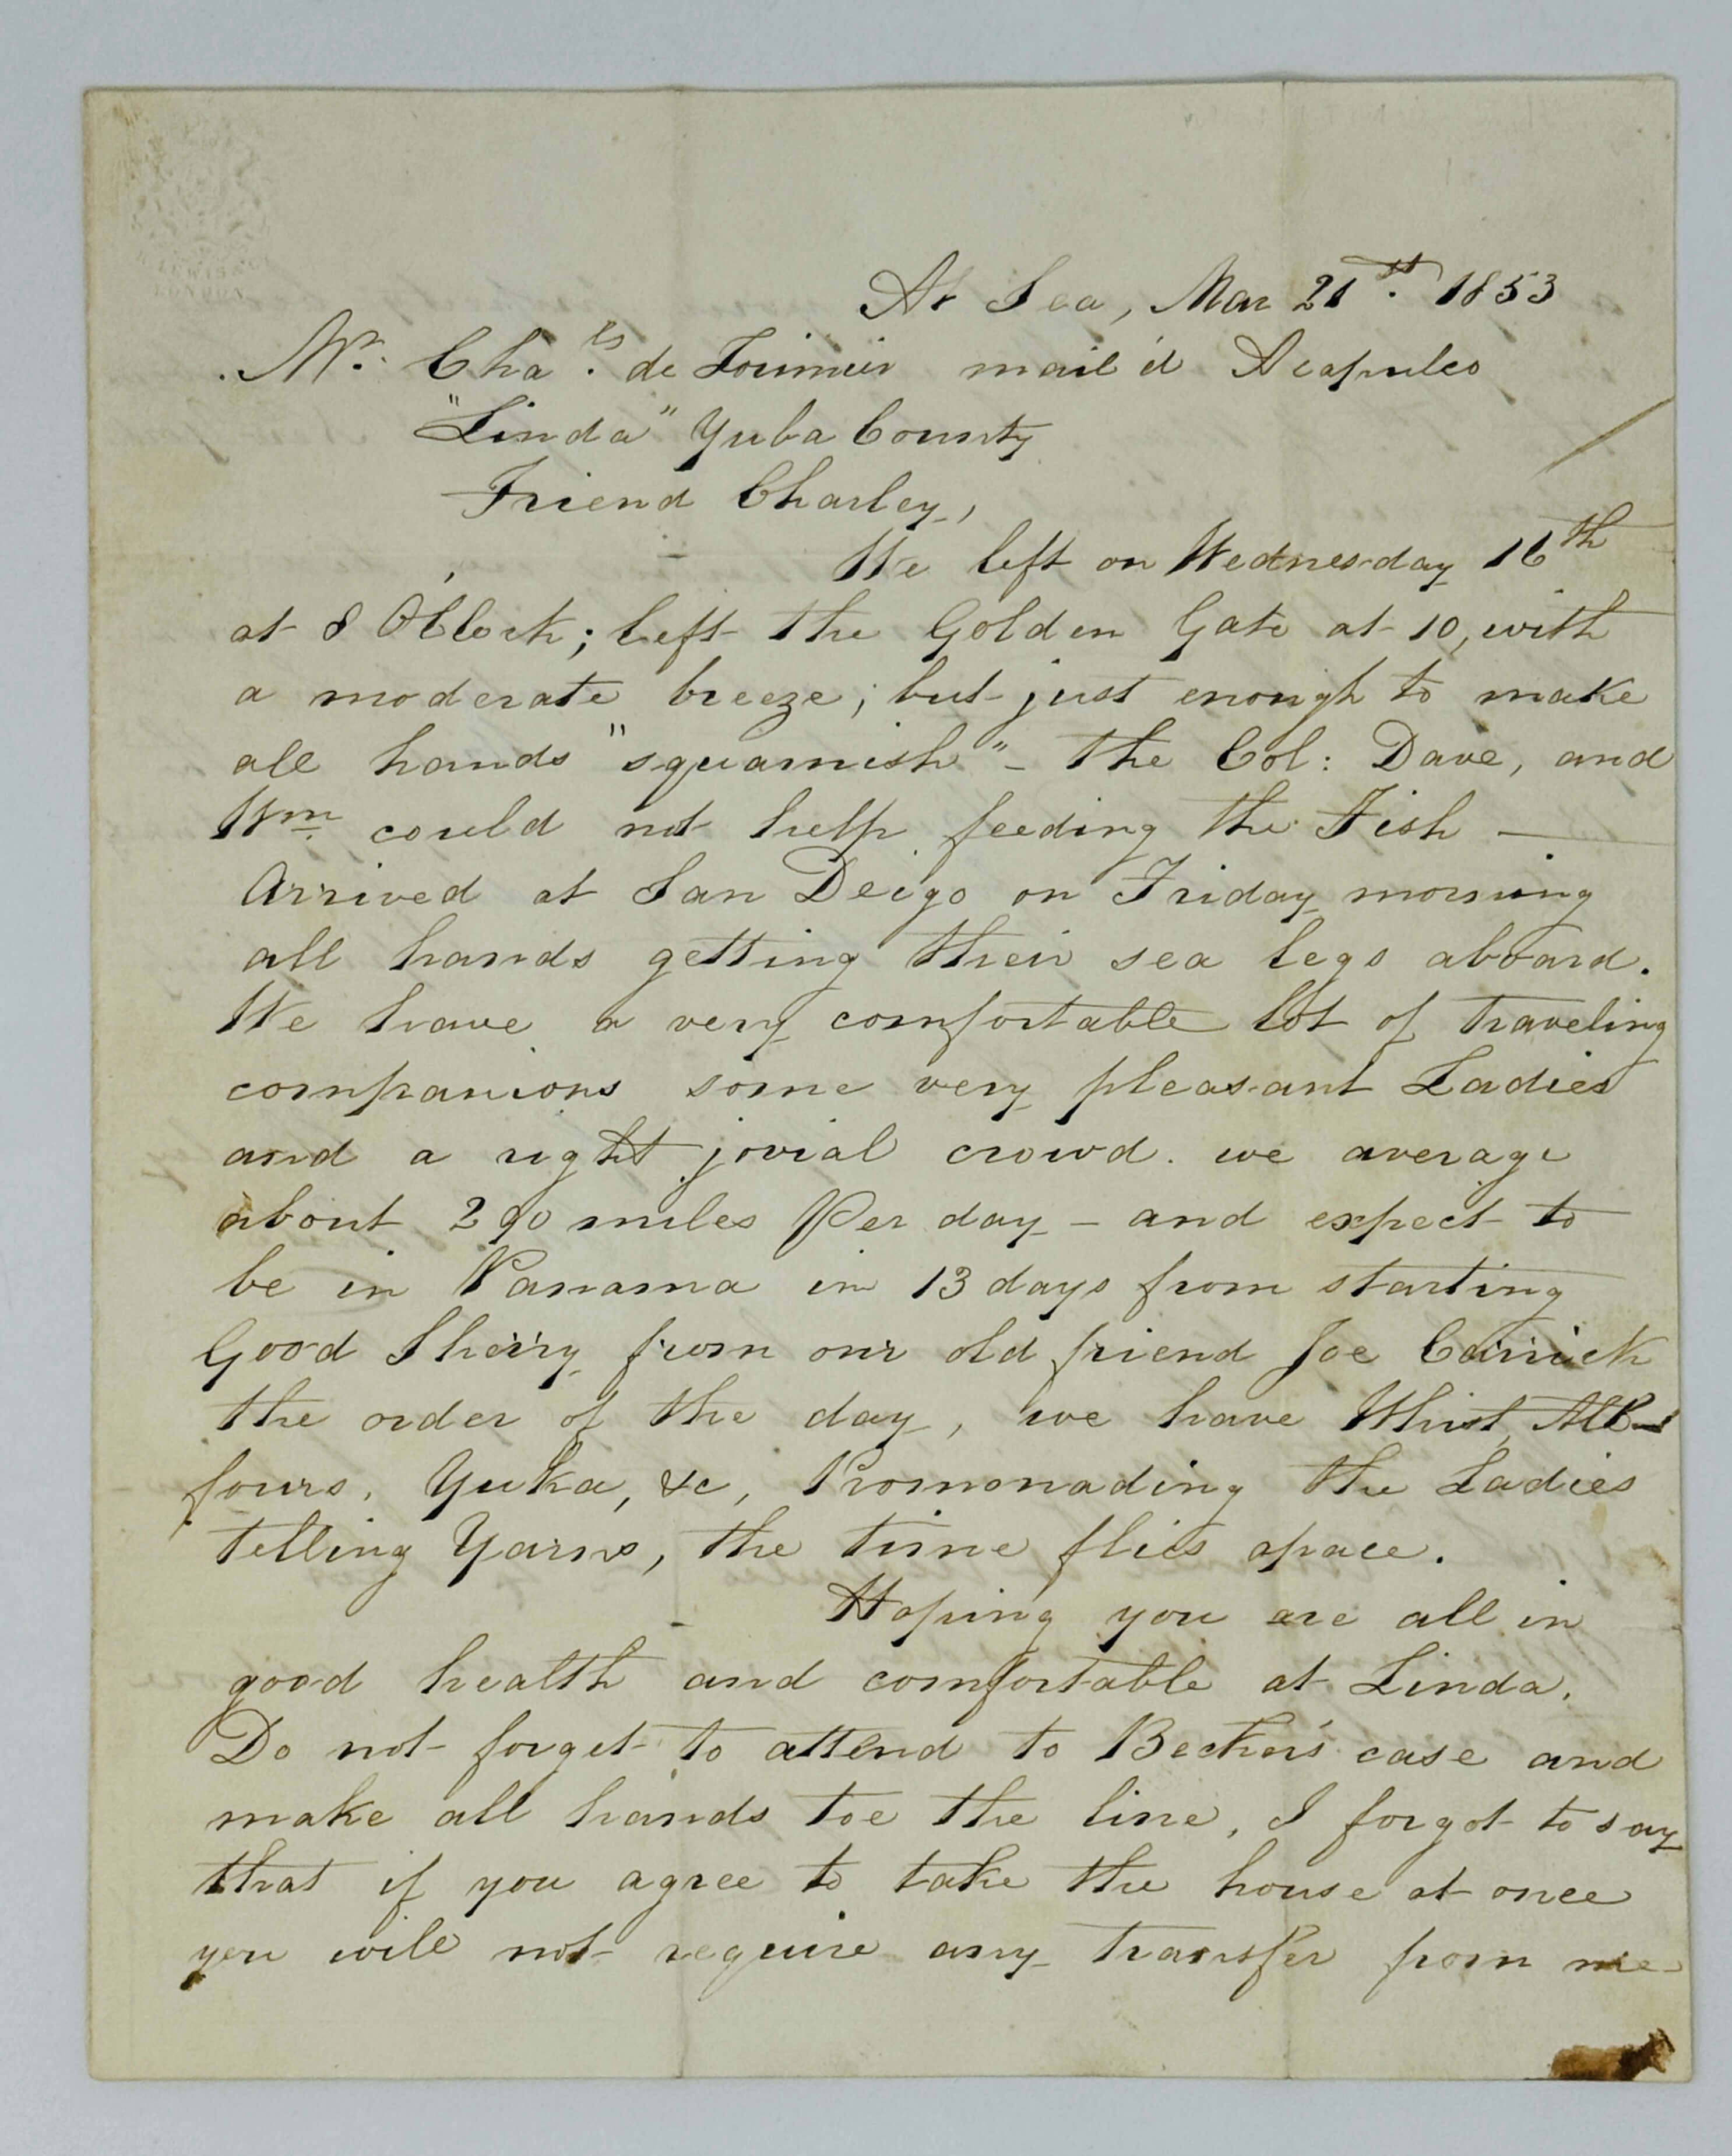 LEWIS & Co
LONDON
At Sea, Mar 21st. 1853
Mr. Chales. de mail'd Acapulco
"Linda" Yuba County
Friend Charley,
We left on Wednesday 16th
at 8 O'Clock; left the Golden Gate at 10, with
a moderate breeze; but just enough to make
all hands "squamish" - the Col: Dave, and
Wm. could not help feeding the Fish —
Arrived at San Deigo on Friday morning
all hands getting their sea legs aboard.
We have a very comfortable lot of traveling
companions some very pleasant Ladies
and a right jovial crowd. we average
about 290 miles Per day - and expect to
be in Panama in 13 days from starting
Good Sherry from our old friend Joe
the order of the day, we have Whist, All-
fours, Yuka, &c, Promonading the Ladies
telling Yarns, the time flies apace.
Hoping you are all in
good health and comfortable at Linda.
Do not forget to attend to case and
make all hands toe the line, I forgot to say
that if you agree to take the house at once
you will not require any transfer from me